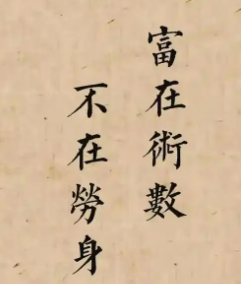 富在術數
不在勞身